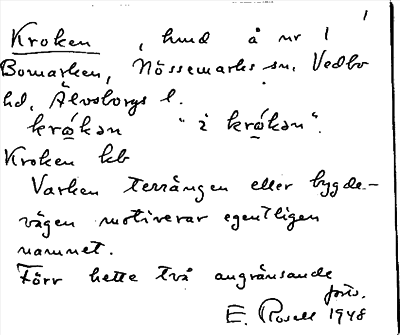 1
Kroken, hmd å nr 1
Bomarken, Nössemarks sn. Vedbo
hd, Älvsborgs l.
krókən "i krókən".
Kroken kb
Varken terrängen eller bygde-
vägen motiverar egentligen
namnet.
Förr hette två angränsande
forts.
E. Rosell 1948